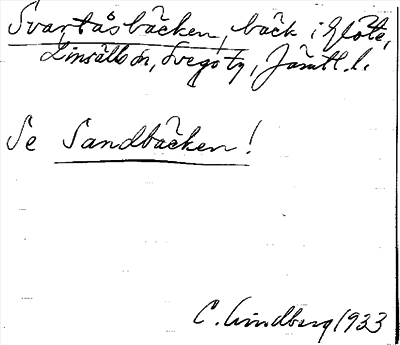 Svartåsbäcken, bäck i Glöte,
Linsälls sn, Svegs tg, Jämtl. l.
Se Sandbäcken!
C. Lindberg 1933